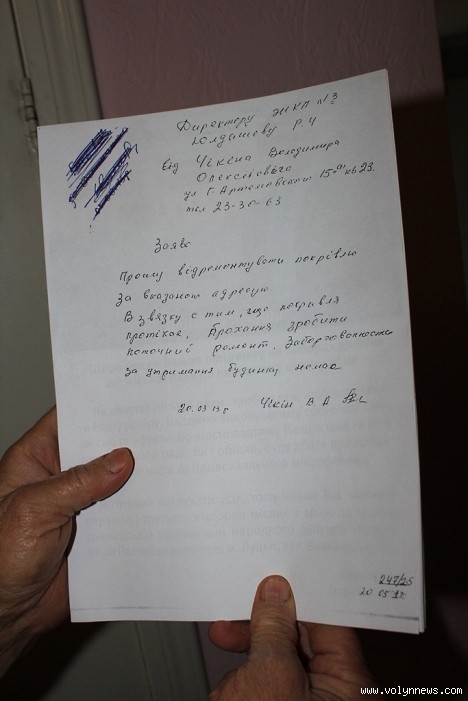 Директору ЖКП №3
Юлдашеву Р.Ч
від Чікіна Володимира
Олексійовича
ул Г. Артемовского 15 кв 23.
тел 23-30-63
Заява
Прошу відремонтувати покрівлю
За вказаною адресую
В звязку с тим, що покривля
протікає, Прохання зробити
поточний ремонт. Заборгованности
за утримання будинку немає
20.03 13 г Чікін В. А
247/25
20 03
www.volynnews.com